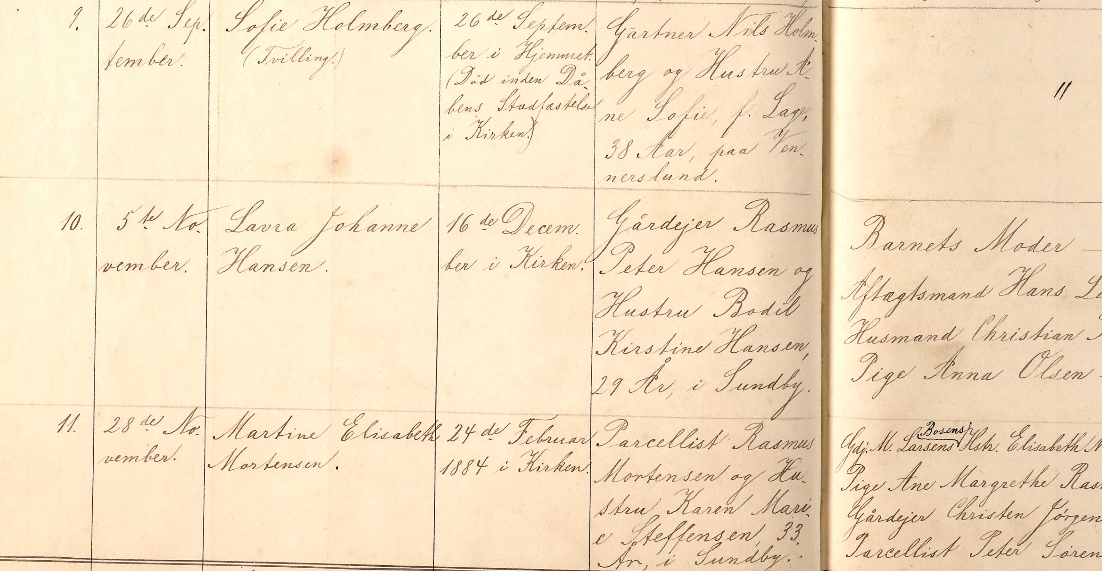 9.
26 de Sep.
tember.
Sofie Holmberg.
(Tvilling.)
26 de Septem.
ber i Hjemmet.
(Död inden Då.
bens Stadfæstelse
i Kirken.)
Gartner Nils Holm.
berg og Hustru A.
ne Sofie, f. Lage,
38 Aar, paa Ven.
nerslund.
"
10.
5 te No.
vember.
Lavra Johanne
Hansen.
16 de Decem.
ber i Kirken.
Gårdejer Rasmus
Peter Hansen og
Hustru Bodil
Kirstine Hansen,
29 År, i Sundby.
Barnets Moder —
Aftægtsmand Hans
Husmand Christian
Pige Anna Olsen -
11.
28 de No.
vember.
Martine Elisabeth
Mortensen.
24 de Februar
1884 i Kirken.
Parcellist Rasmus
Mortensen og Hu.
stru Karen Mari.
e Steffensen, 33
År, i Sundby.
Bosens
Gdj. M. Larsens Hstr. Elisabeth
Pige Ane Margrethe Ras
Gårdejer Christen Jörgen
Parcellist Peter Sören